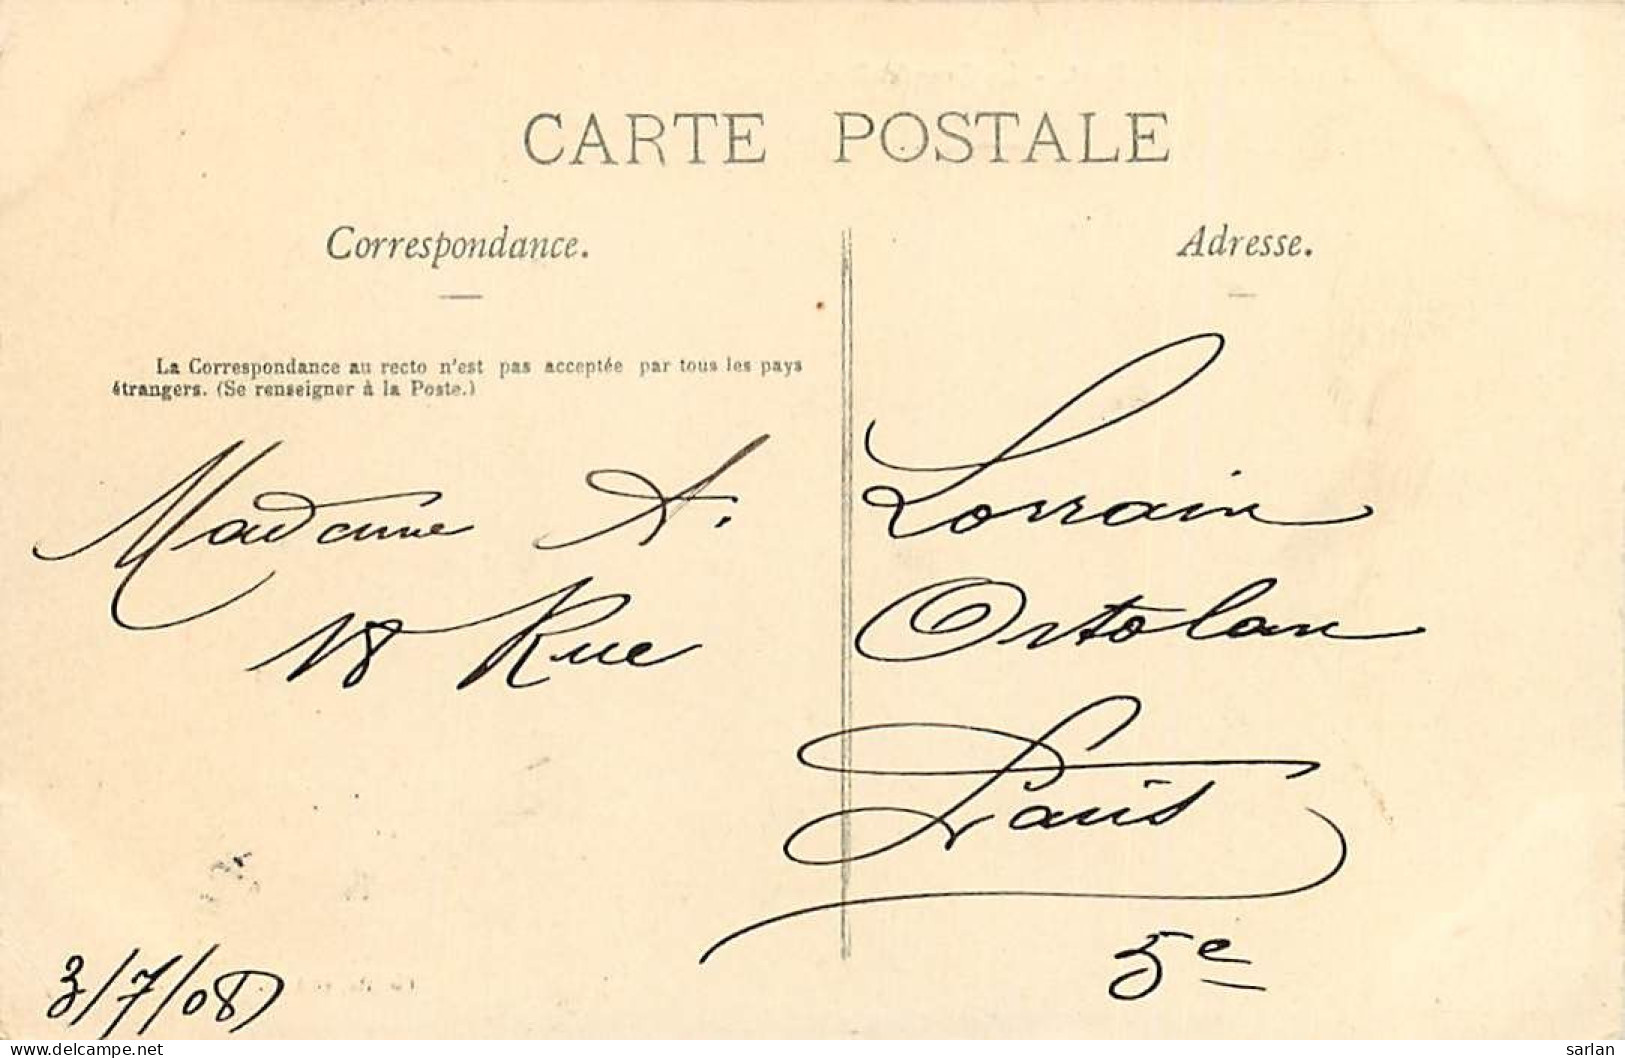 CARTE POSTALE
Correspondance.
Adresse.
La Correspondance au recto n'est pas acceptée par tous les pays
étrangers. (Se renseigner à la Poste.)
Madame A. Lorrain
18 Rue Ortolan
Paris
5e
3/7/08
www.delcampe.net
sarlan